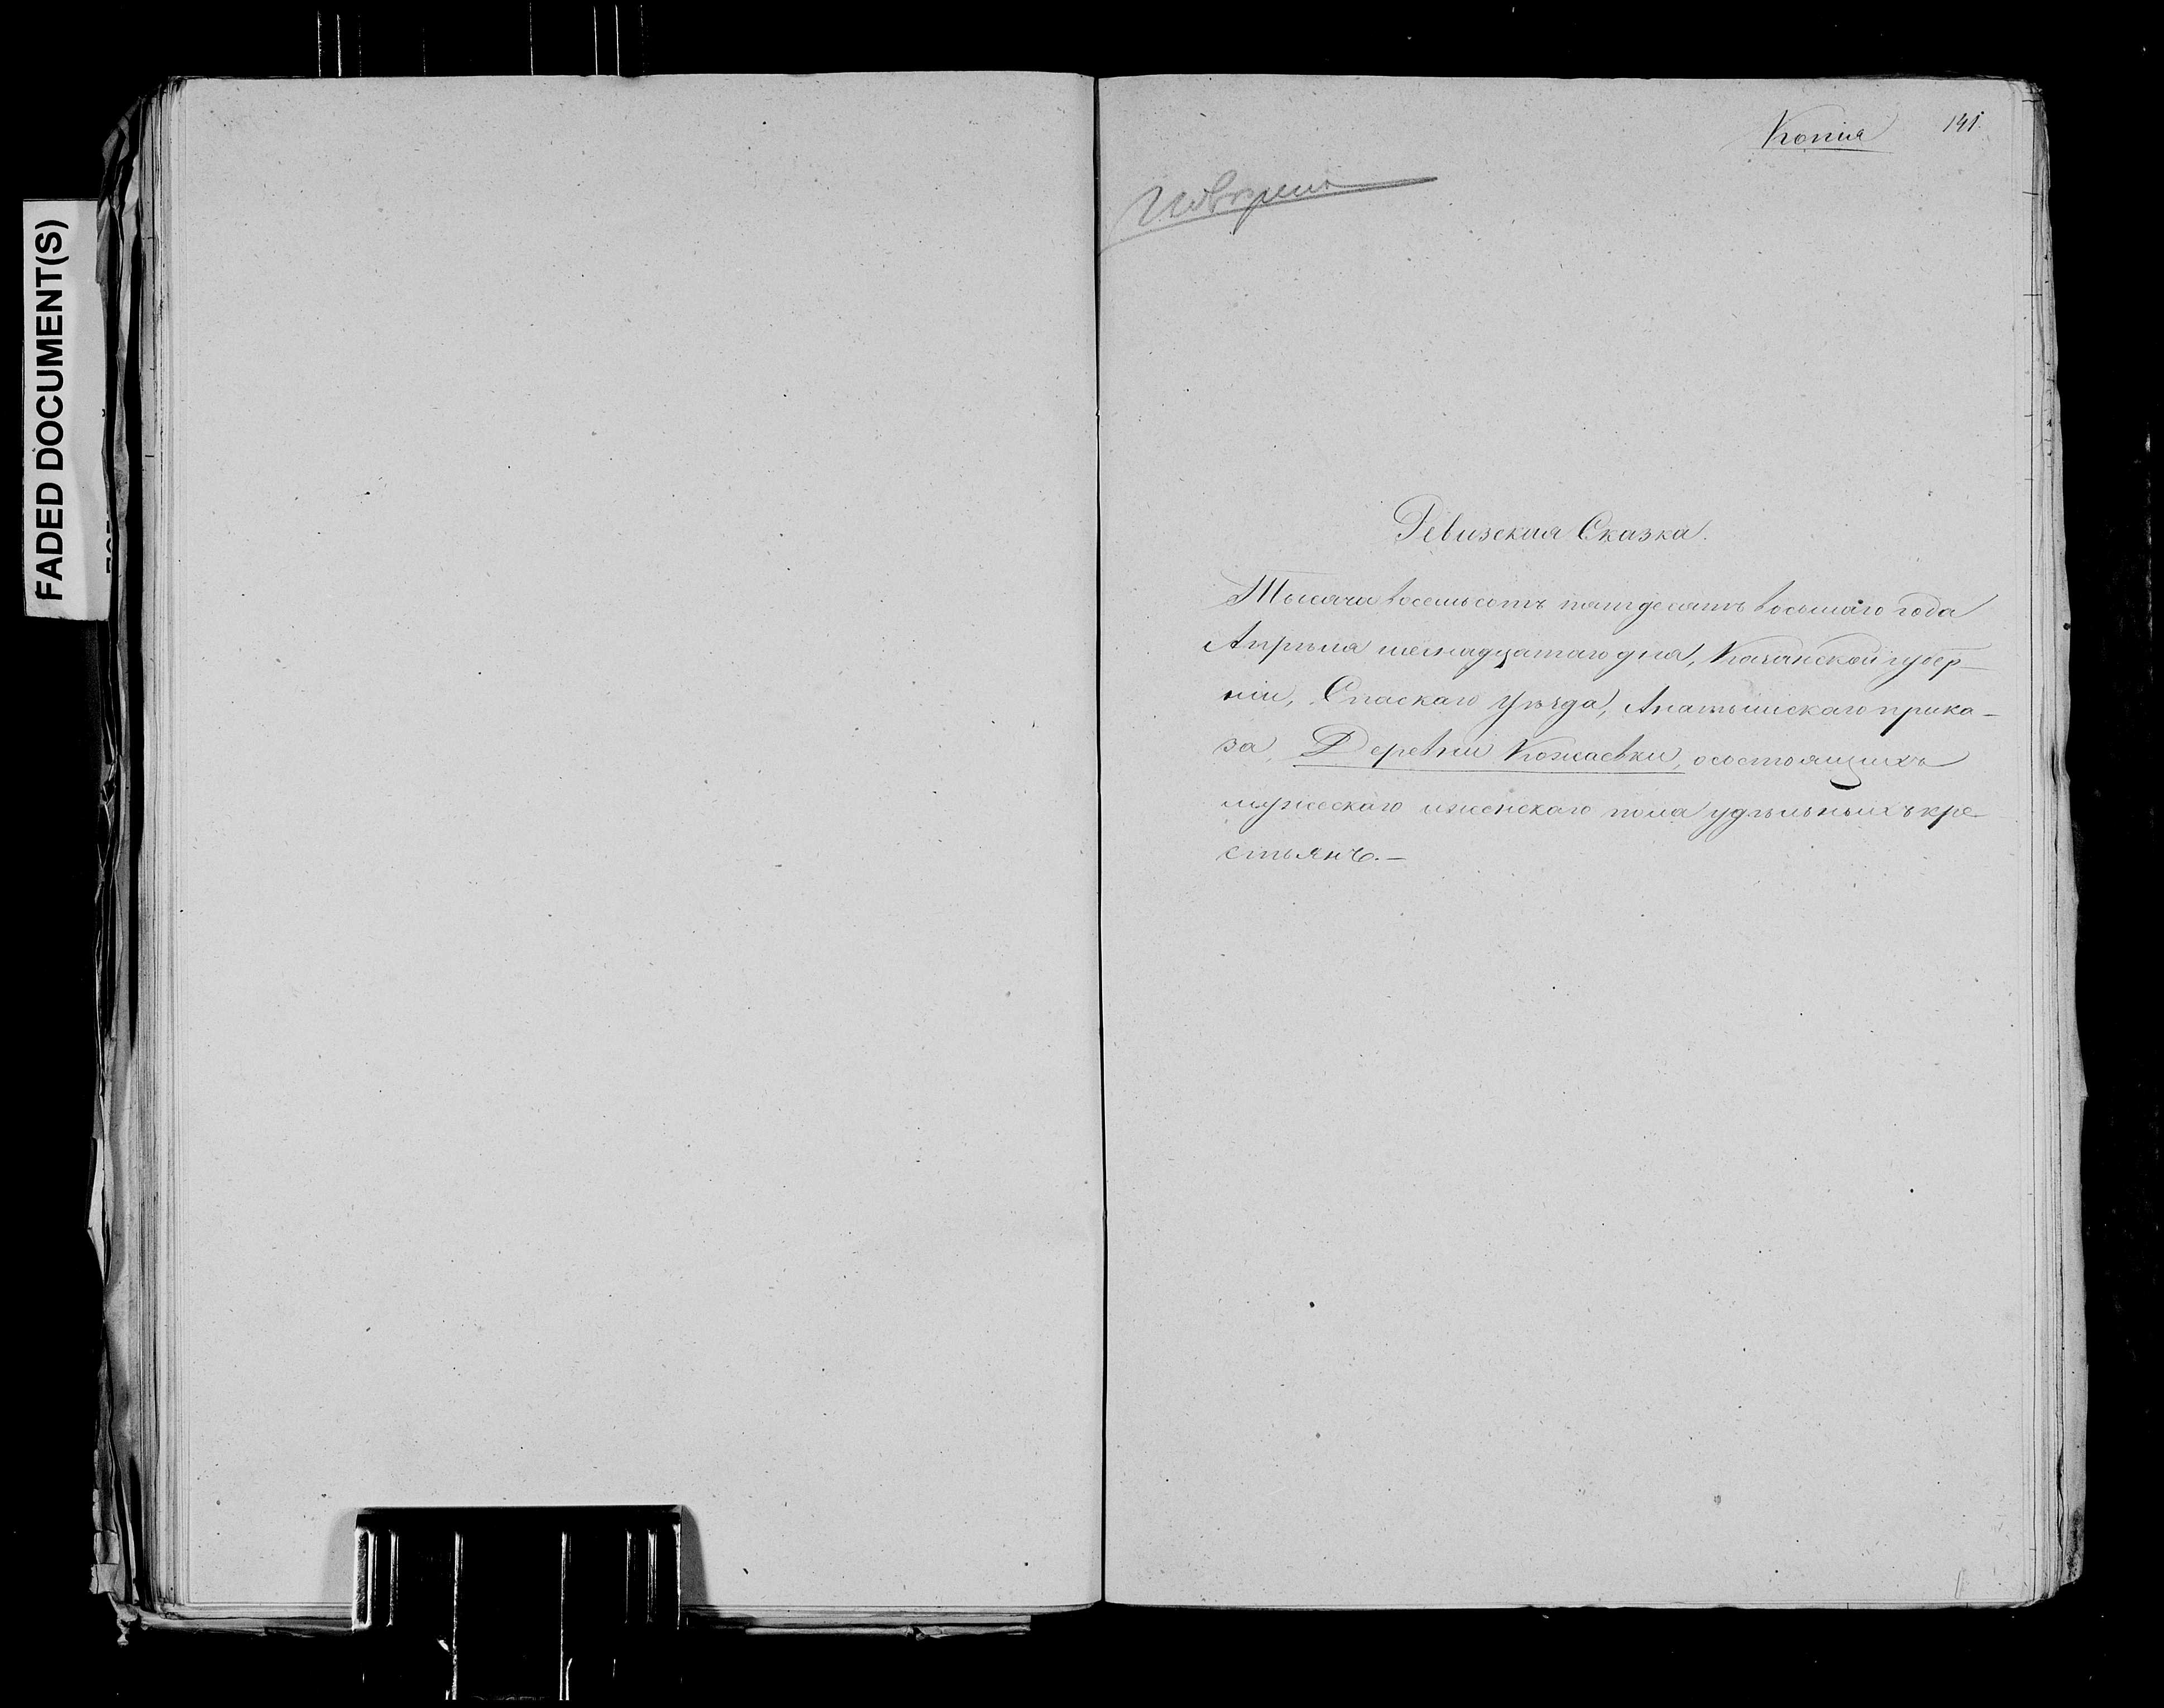 FADED DOCUMENT(S)
Копія
141.
Ревизская Сказка.
Тысяча восемьсотъ пятдесятъ восьмаго года
Апрѣля шеснадцатаго дня, Казанской губер-
ніи, Спаскаго уѣзда, прика-
за, Деревни Кожаевки, о состоящихъ
мужескаго и женскаго пола удѣльныхъ кре-
стьянъ.—